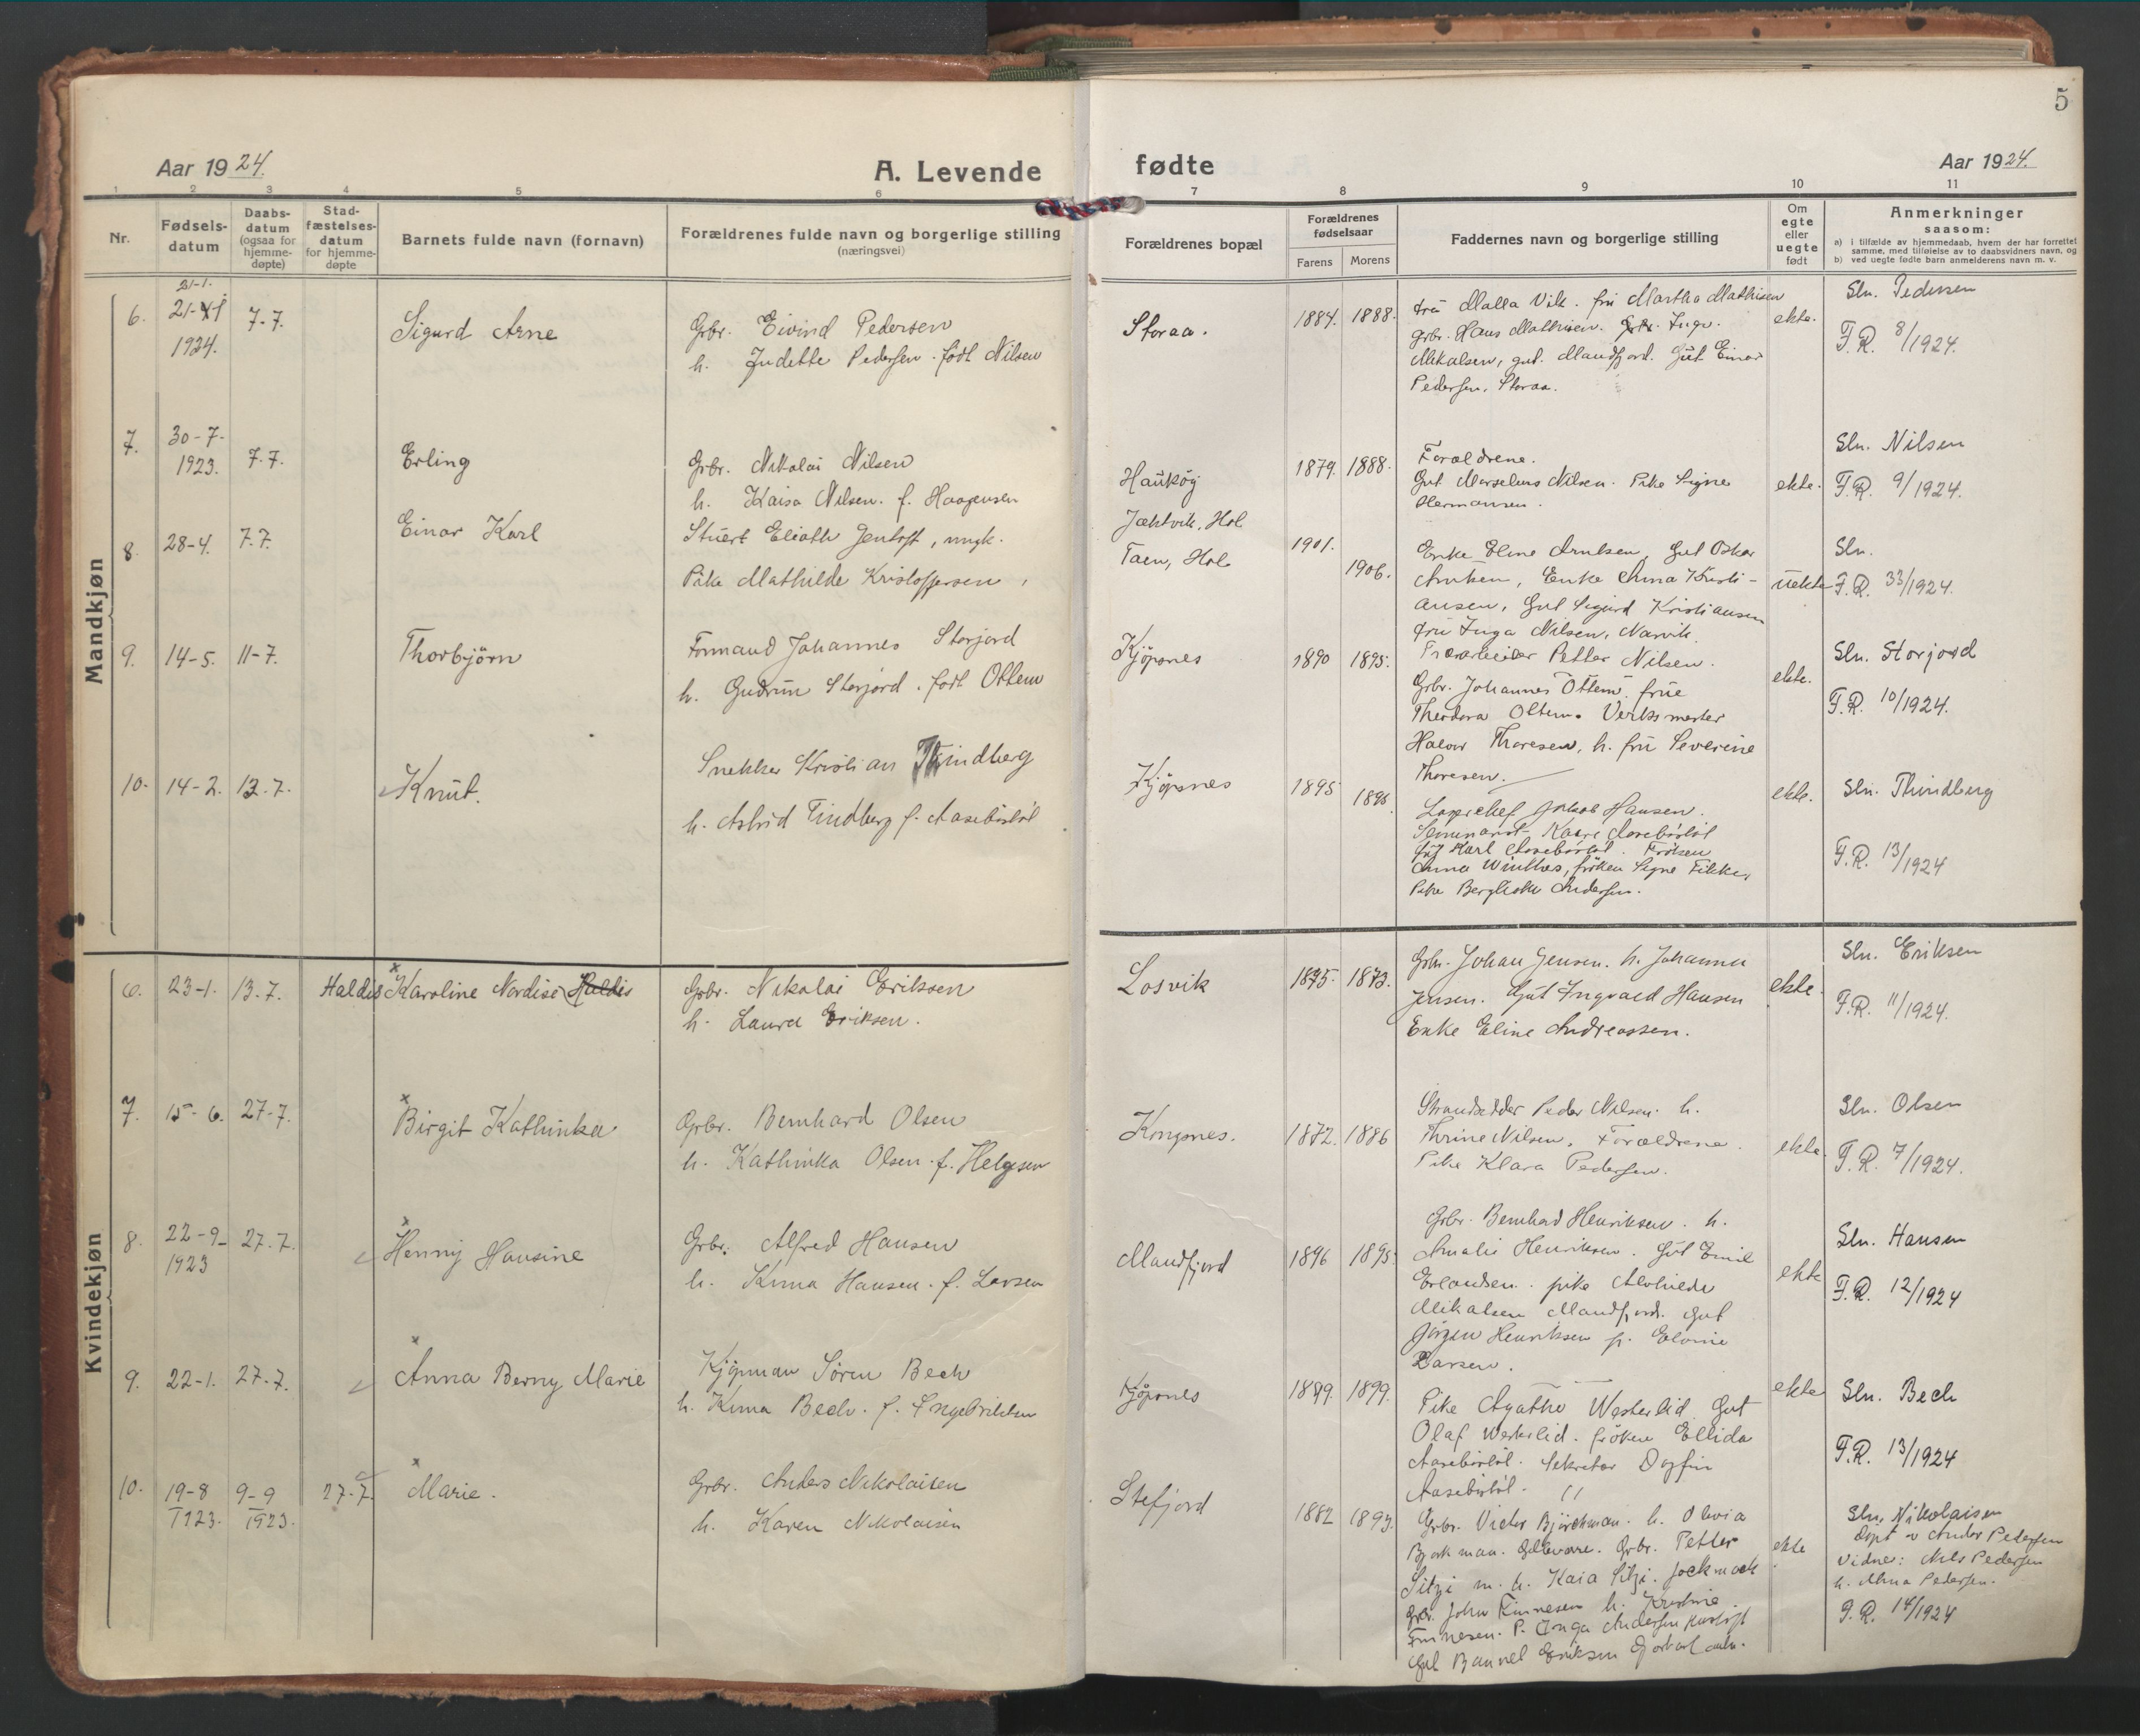 5
Aar 1924.
A. Levende
fødte
Aar 1924.
1 2 3 4 5 6 7 8 9 10 11
Nr.
Fødsels-
datum
Daabs-
datum
(ogsaa for
hjemme-
døpte)
Stad-
fæstelses-
datum
for hjemme-
døpte
Barnets fulde navn (fornavn)
Forældrenes fulde navn og borgerlige stilling
(næringsvei)
Forældrenes bopæl
Forældrenes
fødselsaar
Farens
Morens
Faddernes navn og borgerlige stilling
Om
egte
eller
uegte
født
Anmerkninger
saasom:
a) i tilfælde av hjemmedaab, hvem der har forrettet
samme, med tilføielse av to daabsvidners navn, og
b) ved uegte fødte barn anmelderens navn m. v.
Mandkjøn
6.
21-1.
1924.
7-7.
Sigurd Arne
Grbr. Eivind Pedersen
h. Judette Pedersen. født Nilsen
Storaa.
1884. 1888.
fru Malla Vik. fru Martha Mathisen
Grbr. Hans Mathisen. Grbr. Ingv.
Mikalsen, gut. Mandfjord. Gut Einar
Pedersen, Storaa.
ekte.
Sln. Pedersen
F.R. 8/1924.
7.
30-7-
1923.
7.7.
Erling
Grbr. Nikolai Nilsen
h. Kaisa Nilsen. f. Haagensen
Haukøy
1879. 1888.
Forældrene.
Gut Marselius Nilsen. Pike Signe
Hermansen.
ekte.
Sln. Nilsen
F.R. 9/1924.
8.
28-4.
7.7.
Einar Karl
Stuert Eliath Jentoft, ungk.
Pike Mathilde Kristoffersen,
Jektvik, Hol
Taen, Hol
1901.
1906.
Enke Eline Arntsen, Gut Oskar
Arntsen, Enke Anna Kristi-
ansen, Gut Sigurd Kristiansen
fru Inga Nilsen, Narvik.
uekte
Sln.
F.R. 33/1924.
9.
14-5.
11-7.
Thorbjörn
Formand Johannes Storjord
h. Gudrun Storjord. født Ottem
Kjöpsnes
1890 1895.
Petter Nilsen.
Grbr. Johannes Ottem. frue
Theodora Ottem. Verksmester
Halvor Thoresen, h. fru Severine
Thoresen.
ekte.
Sln. Storjord
F.R. 10/1924.
10.
14-2.
13.7.
Knut.
Snekker Kristian Thindberg
h. Astrid Tindberg f. Aasebøstøl
Kjöpsnes
1895 1896.
Jakob Hansen.
Seminarist Kaare Aasebøstøl
Karl Aasebøstøl. Frøken
Anna Winther, frøken Signe
Pike Bergliot Andersen.
ekte.
Sln. Thindberg
F.R. 13/1924
Kvindekjøn
6.
23-1.
13.7.
Haldis Karoline Nordise Haldis
Grbr. Nikolai Eriksen
h. Laura Eriksen.
Losvik
1875. 1873.
Grbr. Johan Jensen. h. Johanna
Jensen. Gut Ingvald Hansen
Enke Eline Andreassen.
ekte.
Sln. Eriksen
F.R. 11/1924.
7.
15-6.
27-7.
Birgit Kathinka
Grbr. Bernhard Olsen
h. Kathinka Olsen. f. Helgesen
Kongsnes.
1872. 1886
Strandsidder Peder Nilsen. h.
Thrine Nilsen. Forældrene.
Pike Klara Pedersen.
ekte.
Sln. Olsen
F.R. 7/1924.
8.
22-9-
1923
27.7.
Henny Hansine
Grbr. Alfred Hansen
h. Kuna Hansen. f. Larsen
Mandfjord
1896 1895
Grbr. Bernhard Henriksen. h.
Amalie Henriksen. Gut Emil
Erlandsen. pike Alvhilde
Mikalsen Mandfjord. Gut
Jörgen Henriksen p. Elvine
Larsen.
ekte
Sln. Hansen
F.R. 12/1924
9.
22-1.
27-7.
Anna Berny Marie
Kjøpman Sören Bech
h. Kuna Bech. f. Ingebriktsen
Kjöpsnes
1899. 1899.
Pike Agathe Westerlid Gut
Olaf Westerlid. frøken Ellida
Aasebøstøl. Sekretær Dagfin
Aasebøstøl.
ekte
Sln. Bech
F.R. 13/1924
10.
19-8
1923.
9-9
1923.
27-7.
Marie.
Grbr. Anders Nikolaisen
h. Karen Nikolaisen
Stefjord
1882 1893.
Grbr. Victor Björkman. h. Olivia
Bjørkman. Gellevare. Grbr. Petter
Sitzi m. h. Kaia Sitzi. Jockmock
Grbr. John Finnesen h. Kristine
Finnesen. P. Inga Andersen
Gut Eriksen
ekte
Sln. Nikolaisen
døpt v Ander Pedersen
Vidne: Nils Pedersen
h. Alma Pedersen.
F.R. 14/1924